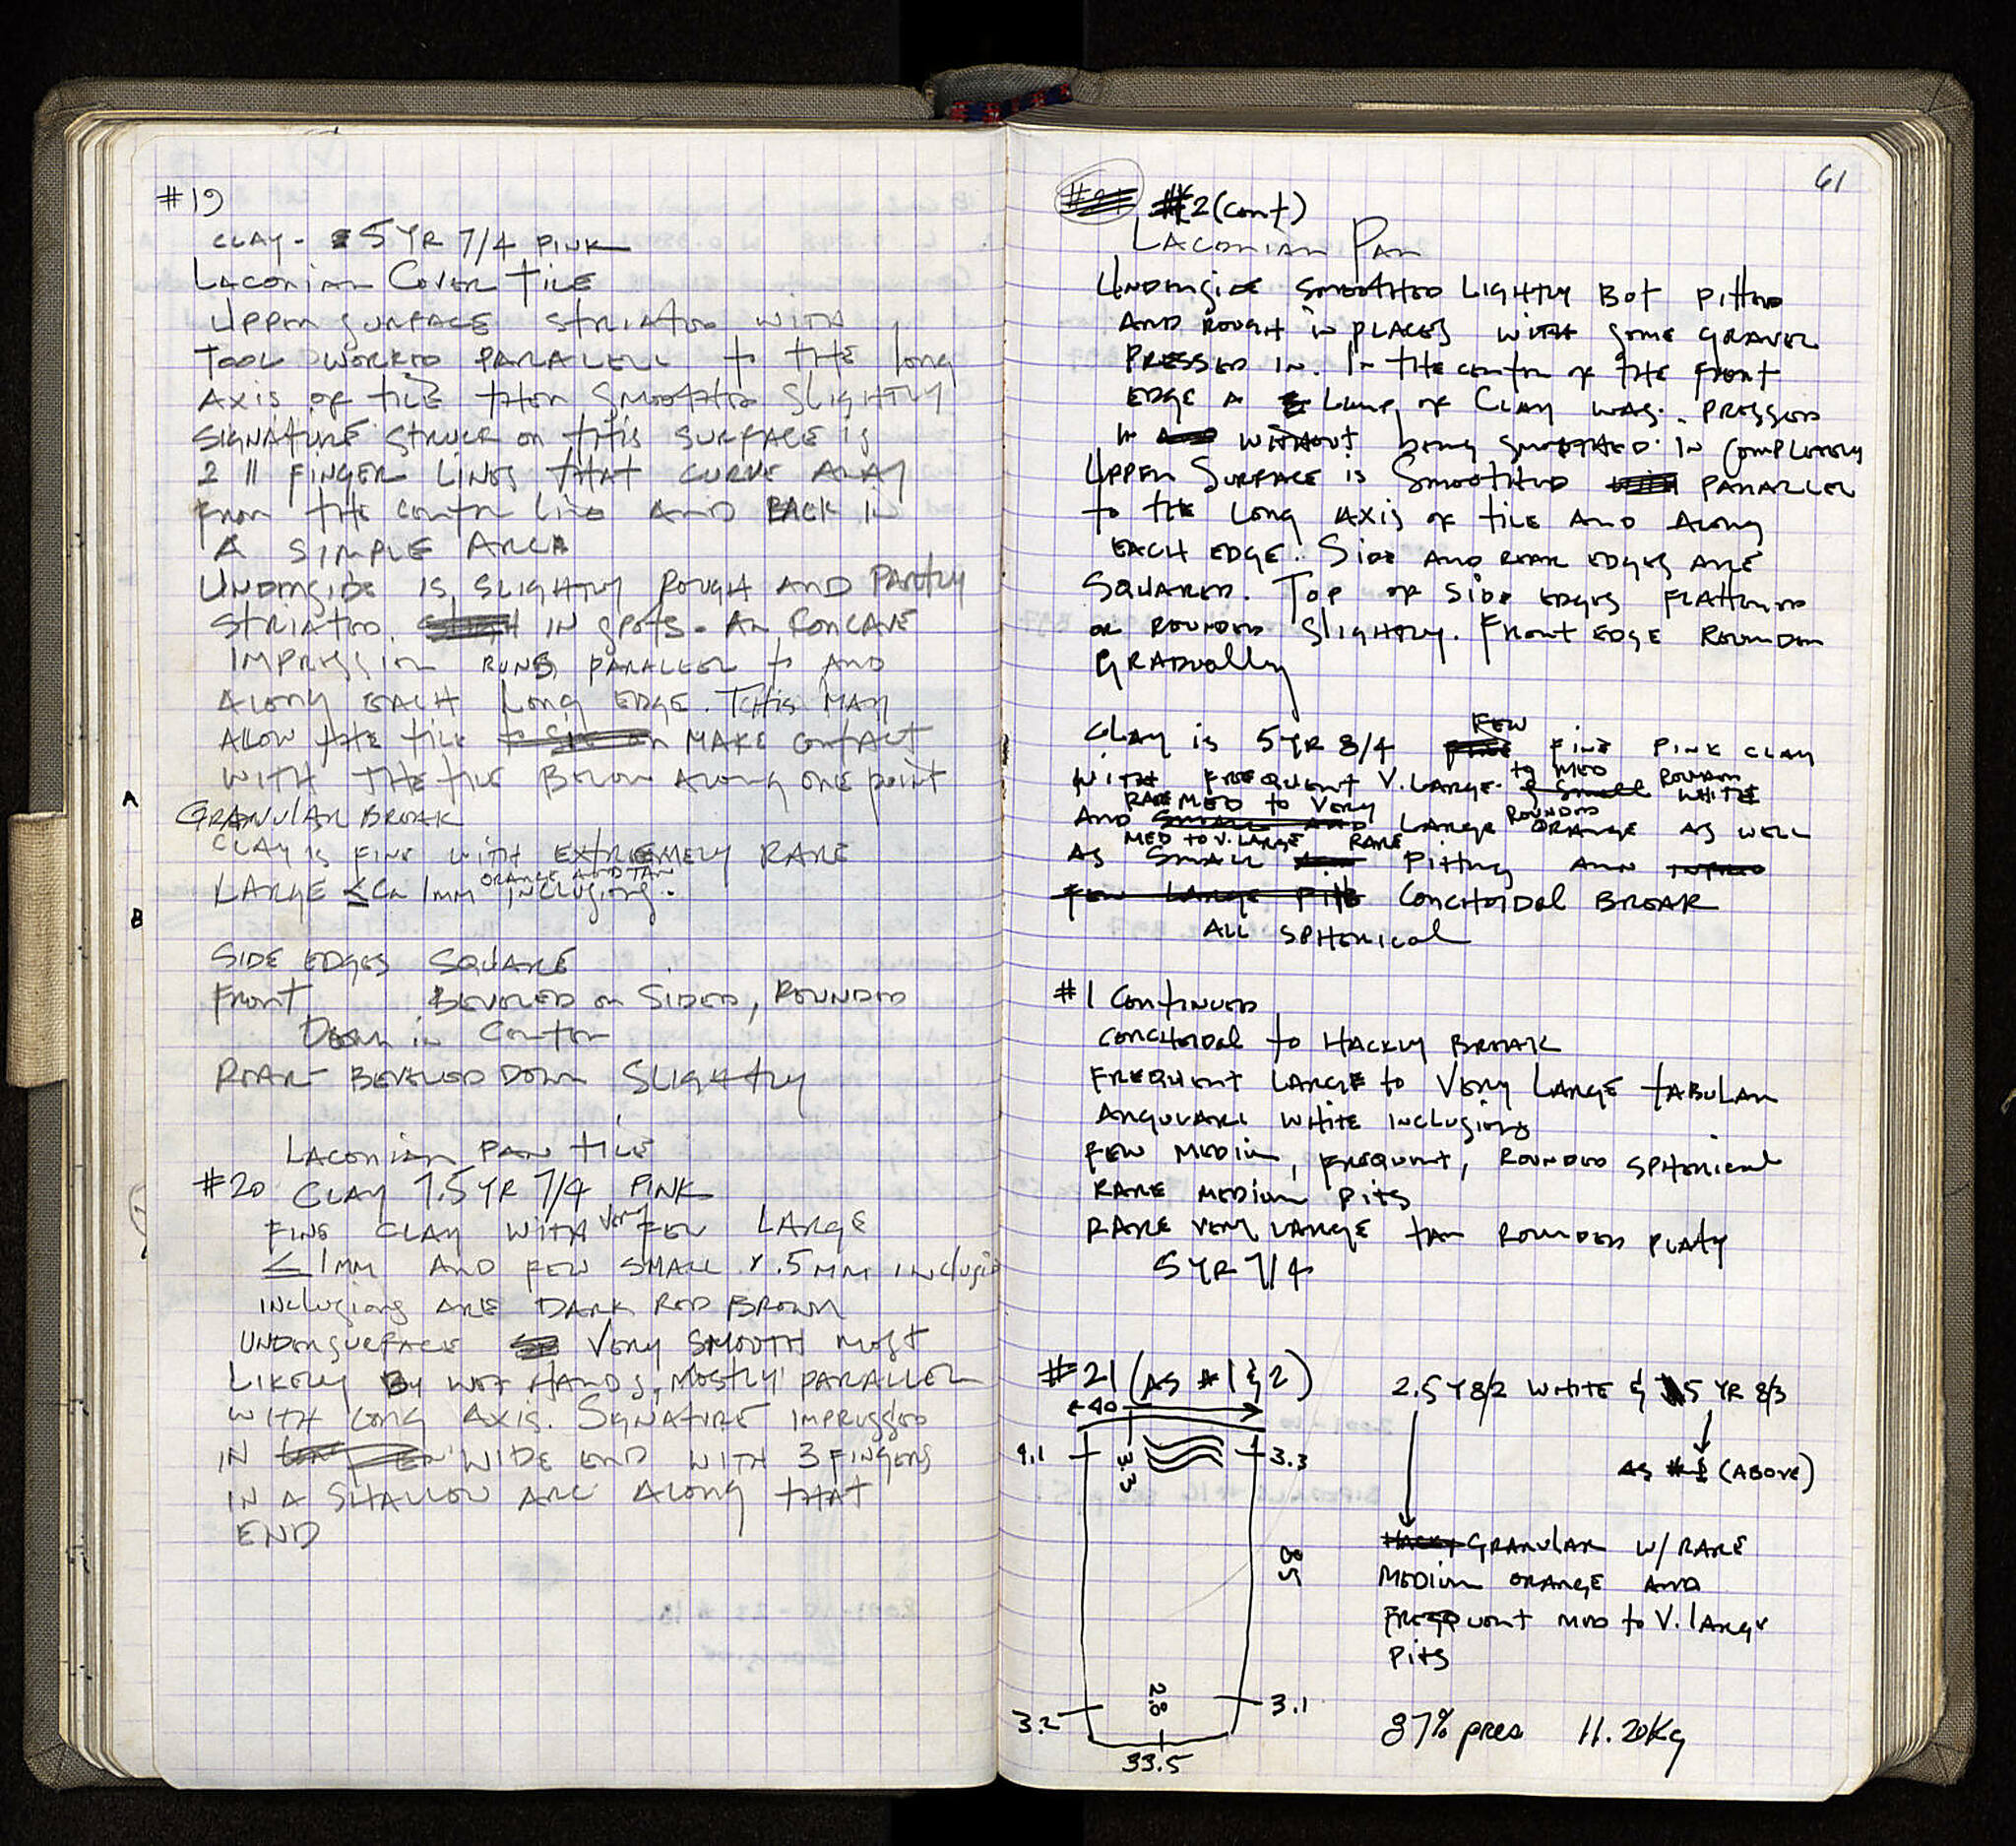 #19
CLAY - 5YR 7/4 PINK
LACONIAN COVER TILE
UPPER SURFACE STRIATED WITH
TOOL WORKED PARALLELL to tHE long
AXIS of tILE tHEN SMOOTHED SLIGHTLY
SIGNATURE STRUCK on tHIS SURFACE IS
2 11 FINGER LINES tHAT CURVE AWAY
FROM tHE CENTER LINE AND BACK IN
A SIMPLE ARCH
UNDERSIDE IS SLIGHTLY ROUGH AND PARTLY
STRIATED IN SPOTS. AN CONCAVE
IMPRESSION RUNS PARALLEL to AND
ALONG EACH LONG EDGE. THIS MAY
ALLOW tHE tILE MAKE CONTACT
WITH THE tILE BELOW ALONG ONE POINT
A
GRANULAR BREAK
CLAY IS FINE WITH EXTREMELY RARE
ORANGE AND TAN
LARGE ≤ Ca 1mm INCLUSIONS.
B
SIDE EDGES SQUARE
FRONT BEVELED ON SIDED, ROUNDED
DOWN IN CENTER
REAR BEVELED DOWN SLIGHTLY
LACONIAN PAN TILE
#20 CLAY 7.5 YR 7/4 PINK
FINE CLAY WITH VERY FEW LARGE
≤ 1MM AND FEW SMALL .5MM INCLUSIO
INCLUSIONS ARE DARK RED BROWN
UNDERSURFACE VERY SMOOTH MOST
LIKELY By WET HANDS, MOSTLY PARALLEL
WITH LONG AXIS. SIGNATURE IMPRESSED
IN WIDE END WITH 3 FINGERS
IN A SHALLOW ARC ALONG tHAT
END
61
#2 (cont)
LACONIAN PAN
UNDERSIDE SMOOTHED LIGHTLY BUT PITTED
AND ROUGH IN PLACES WITH SOME GRAVEL
PRESSED IN. IN tHE CENTER of tHE FRONT
EDGE A LUMP of CLAY WAS PRESSED
IN WITHOUT being SMOOTHED IN COMPLETELY
UPPER SURFACE IS SMOOTHED PARALLEL
to tHE LONG AXIS of tILE AND ALONG
EACH EDGE. SIDE AND REAR EDGES ARE
SQUARED. TOP OF SIDE EDGES FLATTENED
OR ROUNDED SLIGHTLY. FRONT EDGE ROUNDED
GRADUALLY
FEW
CLAY IS 5YR 8/4 FINE PINK CLAY
to MED ROUNDED
WITH FREQUENT V. LARGE WHITE
RARE MED to VERY ROUNDED
AND LARGE ORANGE AS WELL
MED TO V. LARGE RARE
AS SMALL PITTING AND
CONCHOIDAL BREAK
ALL SPHERICAL
#1 CONTINUED
CONCHOIDAL to HACKLY BREAK
FREQUENT LARGE to VERY LARGE tABULAR
ANGULARE WHITE INCLUSIONS
FEW MEDIUM, FREQUENT, ROUNDED SPHERICAL
RARE MEDIUM PITS
RARE VERY LARGE tAN ROUNDED PLATY
5YR 7/4
#21 (AS #1 & 2)
2.5Y 8/2 WHITE & 5 YR 8/3
40
4.1
3.3
3.3
AS #1 (ABOVE)
85
GRANULAR W/ RARE
MEDIUM ORANGE AND
FREQUENT MED to V. LARGE
PITS
2.8
3.2
3.1
33.5
87% pres 11.20Kg